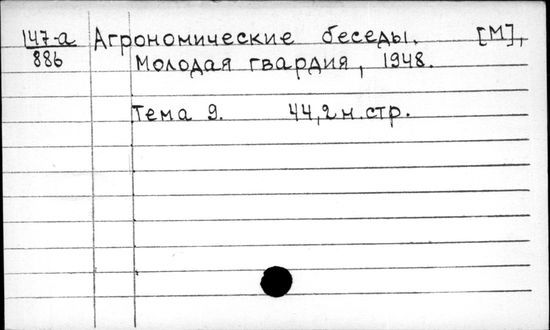 147-а Агрономические беседы. [М],
886 Молодая гвардия, 1948.
Тема 9. 44,2 н.стр.